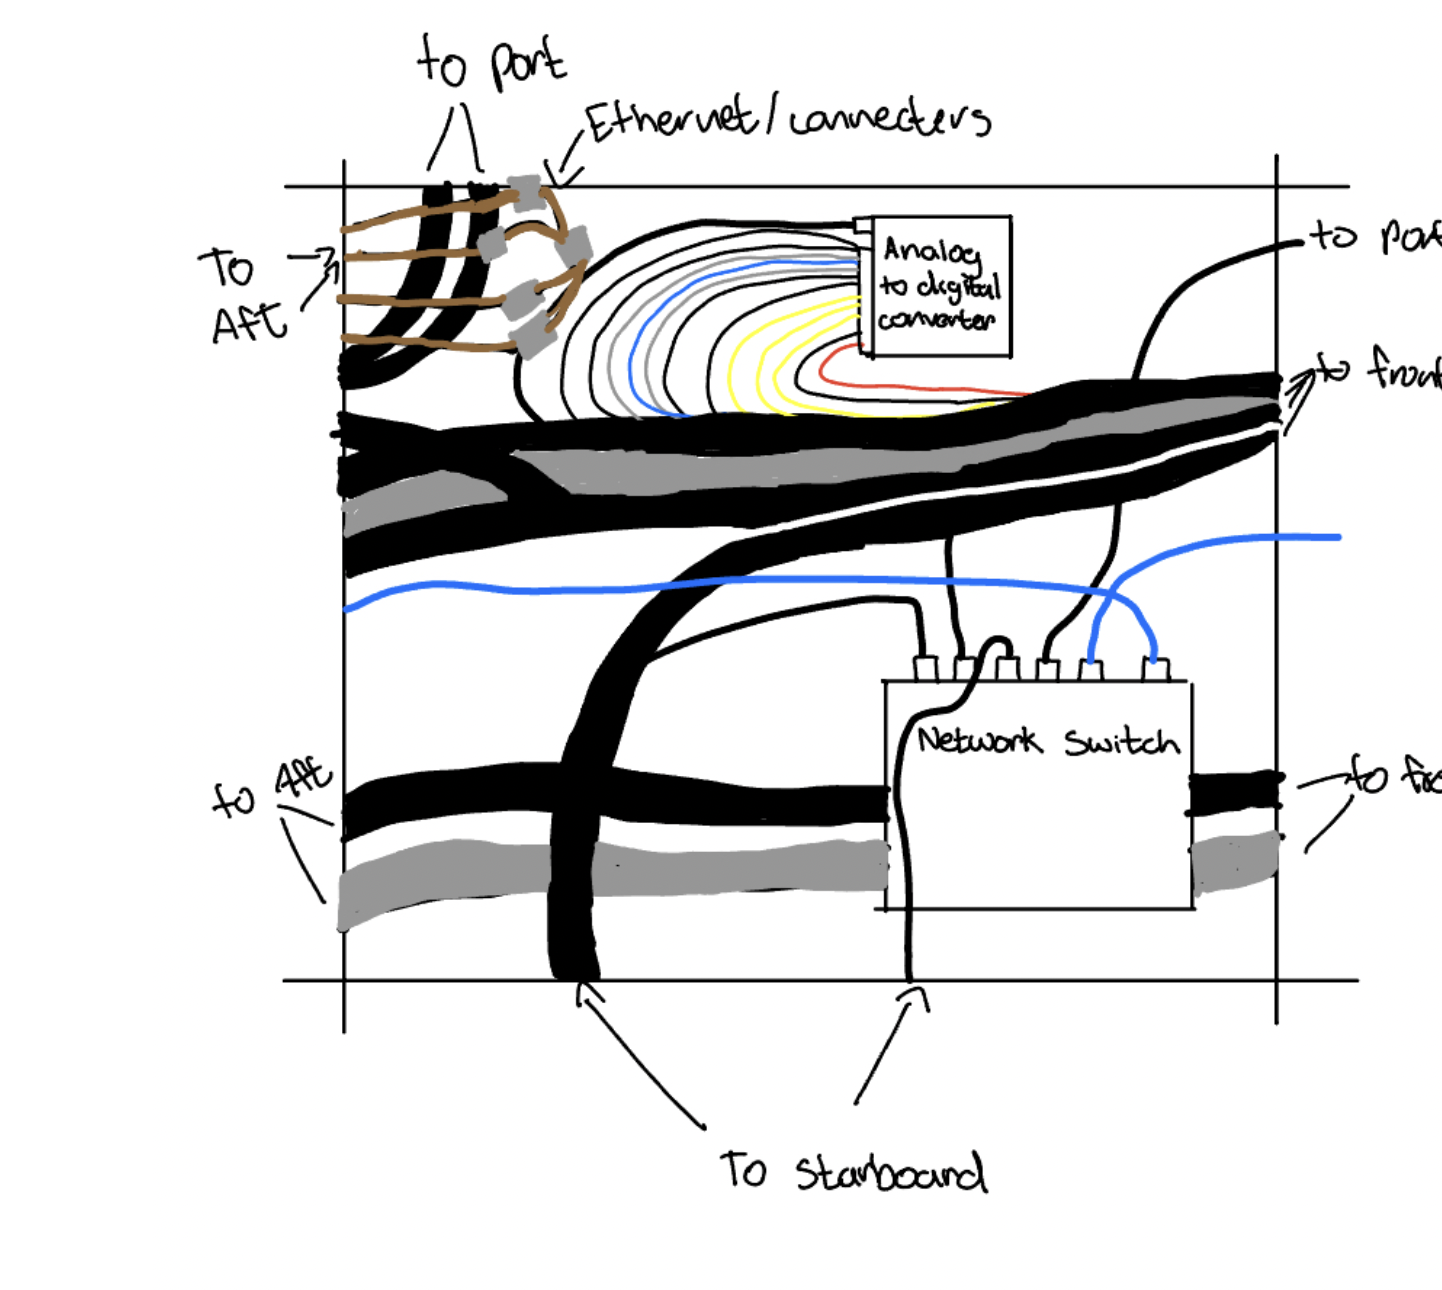 to port
Ethernet/connecters
To
Aft
Analog
to digital
converter
to port
to front
Network Switch
to Aft
to fro
To starboard